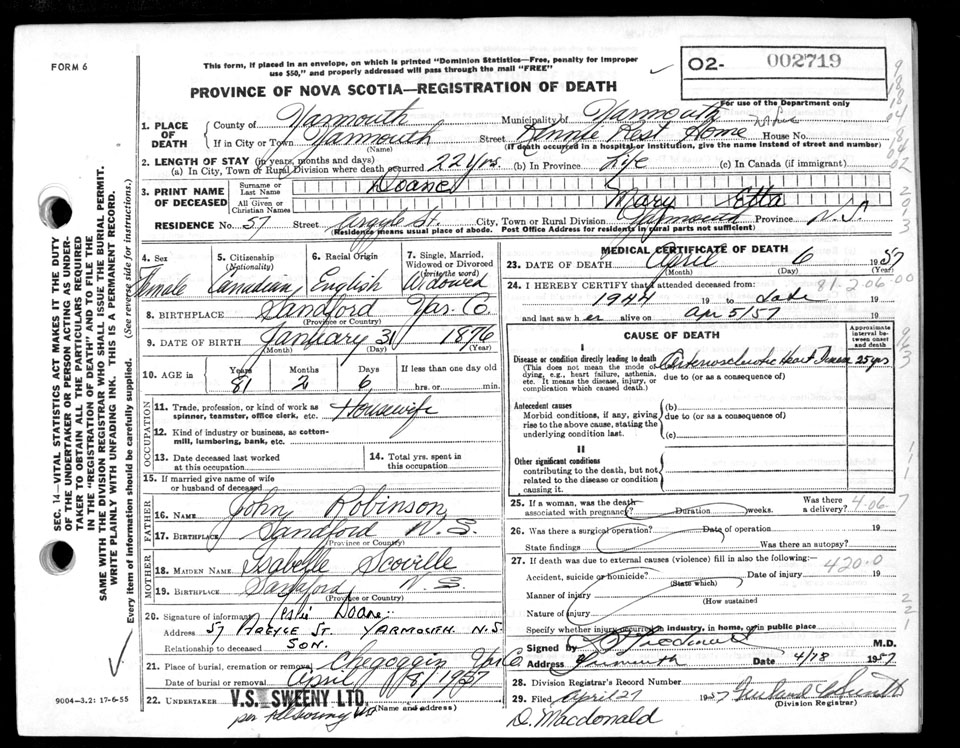 FORM 6
This form, if placed in an envelope, on which is printed "Dominion Statistics—Free, penalty for improper
use $50," and properly addressed will pass through the mail "FREE"
O2- 002719
PROVINCE OF NOVA SCOTIA—REGISTRATION OF DEATH
For use of the Department only
1. PLACE OF DEATH
County of Yarmouth Municipality of Yarmouth
If in City or Town Yarmouth Street Rest Home House No.
(Name) (If death occurred in a hospital or institution, give the name instead of street and number)
2. LENGTH OF STAY (in years, months and days)
(a) In City, Town or Rural Division where death occurred 22 yrs. (b) In Province Life (c) In Canada (if immigrant)
3. PRINT NAME OF DECEASED
Surname or Last Name Doane
All Given or Christian Names Mary Etta
RESIDENCE No. 57 Street Argyle St. City, Town or Rural Division Yarmouth Province N.S.
(Residence means usual place of abode. Post Office Address for residents in rural parts not sufficient)
4. Sex Female
5. Citizenship (Nationality) Canadian
6. Racial Origin English
7. Single, Married, Widowed or Divorced (write the word) Widowed
8. BIRTHPLACE Sandford Yar. Co.
(Province or Country)
9. DATE OF BIRTH January 31 1876
(Month) (Day) (Year)
10. AGE in Years Months Days If less than one day old
81 2 6 hrs. or min.
OCCUPATION
11. Trade, profession, or kind of work as spinner, teamster, office clerk, etc. Housewife
12. Kind of industry or business, as cotton-mill, lumbering, bank, etc.
13. Date deceased last worked at this occupation
14. Total yrs. spent in this occupation
15. If married give name of wife or husband of deceased
FATHER
16. NAME John Robinson
17. BIRTHPLACE Sandford N.S.
(Province or Country)
MOTHER
18. MAIDEN NAME Isabelle Scoville
19. BIRTHPLACE Sandford N.S.
(Province or Country)
20. Signature of informant Leslie Doane
Address 57 ARGYLE ST. YARMOUTH. N.S.
Relationship to deceased SON.
21. Place of burial, cremation or removal Chegoggin Yar Co
Date of burial or removal April 8, 1957
22. UNDERTAKER V.S. SWEENY LTD.
(Name and address)
9004—3.2: 17-6-55
MEDICAL CERTIFICATE OF DEATH
23. DATE OF DEATH April 6 1957
(Month) (Day) (Year)
24. I HEREBY CERTIFY that I attended deceased from:
81-2-06-00
1944 19 to date 19
and last saw her alive on Apr 5/57 19
CAUSE OF DEATH
Approximate interval between onset and death
I
Disease or condition directly leading to death
(This does not mean the mode of dying, e.g., heart failure, asthenia, etc. It means the disease, injury, or complication which caused death.)
(a) Arteriosclerotic Heart Disease 25 yrs
due to (or as a consequence of)
Antecedent causes
Morbid conditions, if any, giving rise to the above cause, stating the underlying condition last.
(b)
due to (or as a consequence of)
(c)
II
Other significant conditions
contributing to the death, but not related to the disease or condition causing it.
25. If a woman, was the death associated with pregnancy? Duration weeks. Was there a delivery?
4.06
26. Was there a surgical operation? Date of operation 19
State findings Was there an autopsy?
27. If death was due to external causes (violence) fill in also the following:
420.0
Accident, suicide or homicide? Date of injury 19
(State which)
Manner of injury
(How sustained
Nature of injury
Specify whether injury occurred in industry, in home, or in public place
Signed by M.D.
Address Yarmouth Date 4/18 1957
28. Division Registrar's Record Number
29. Filed April 27 1957
(Division Registrar)
D. Macdonald
SEC. 14—VITAL STATISTICS ACT MAKES IT THE DUTY
OF THE UNDERTAKER OR PERSON ACTING AS UNDER-
TAKER TO OBTAIN ALL THE PARTICULARS REQUIRED
IN THE "REGISTRATION OF DEATH" AND TO FILE THE
SAME WITH THE DIVISION REGISTRAR WHO SHALL ISSUE THE BURIAL PERMIT.
WRITE PLAINLY WITH UNFADING INK. THIS IS A PERMANENT RECORD.
Every item of information should be carefully supplied. (See reverse side for instructions.)